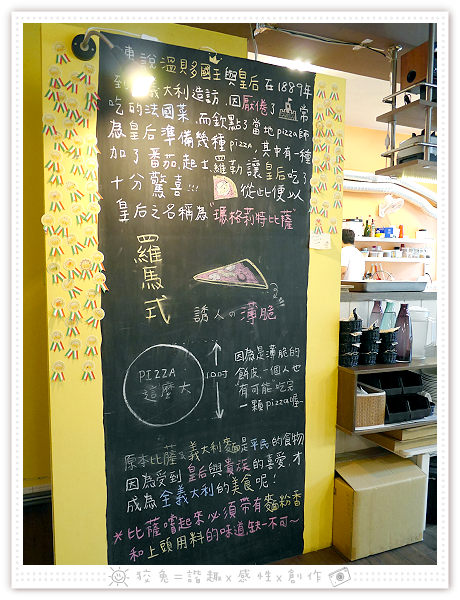 車說溫貝多國王與皇后在1889年
到義大利造訪,因厭倦了常
吃的法國菜,而欽點了當地pizza師
為皇后準備幾種pizza,其中有一種
加了番茄.起士.羅勒讓皇后吃了
十分驚喜!!! 從此便以
皇后之名稱為"瑪格莉特比薩"
羅馬式
誘人の薄脆
PIZZA
這麼大
10吋
因為是薄脆的
餅皮,一個人也
有可能吃完
一顆pizza喔~
原本比薩&義大利麵是平民的食物
因為受到皇后與貴族的喜愛,才
成為全義大利的美食呢!
*比薩嚐起來必須帶有麵粉香
和上頭用料的味道,缺一不可~
狡兔=諧趣x感性x創作